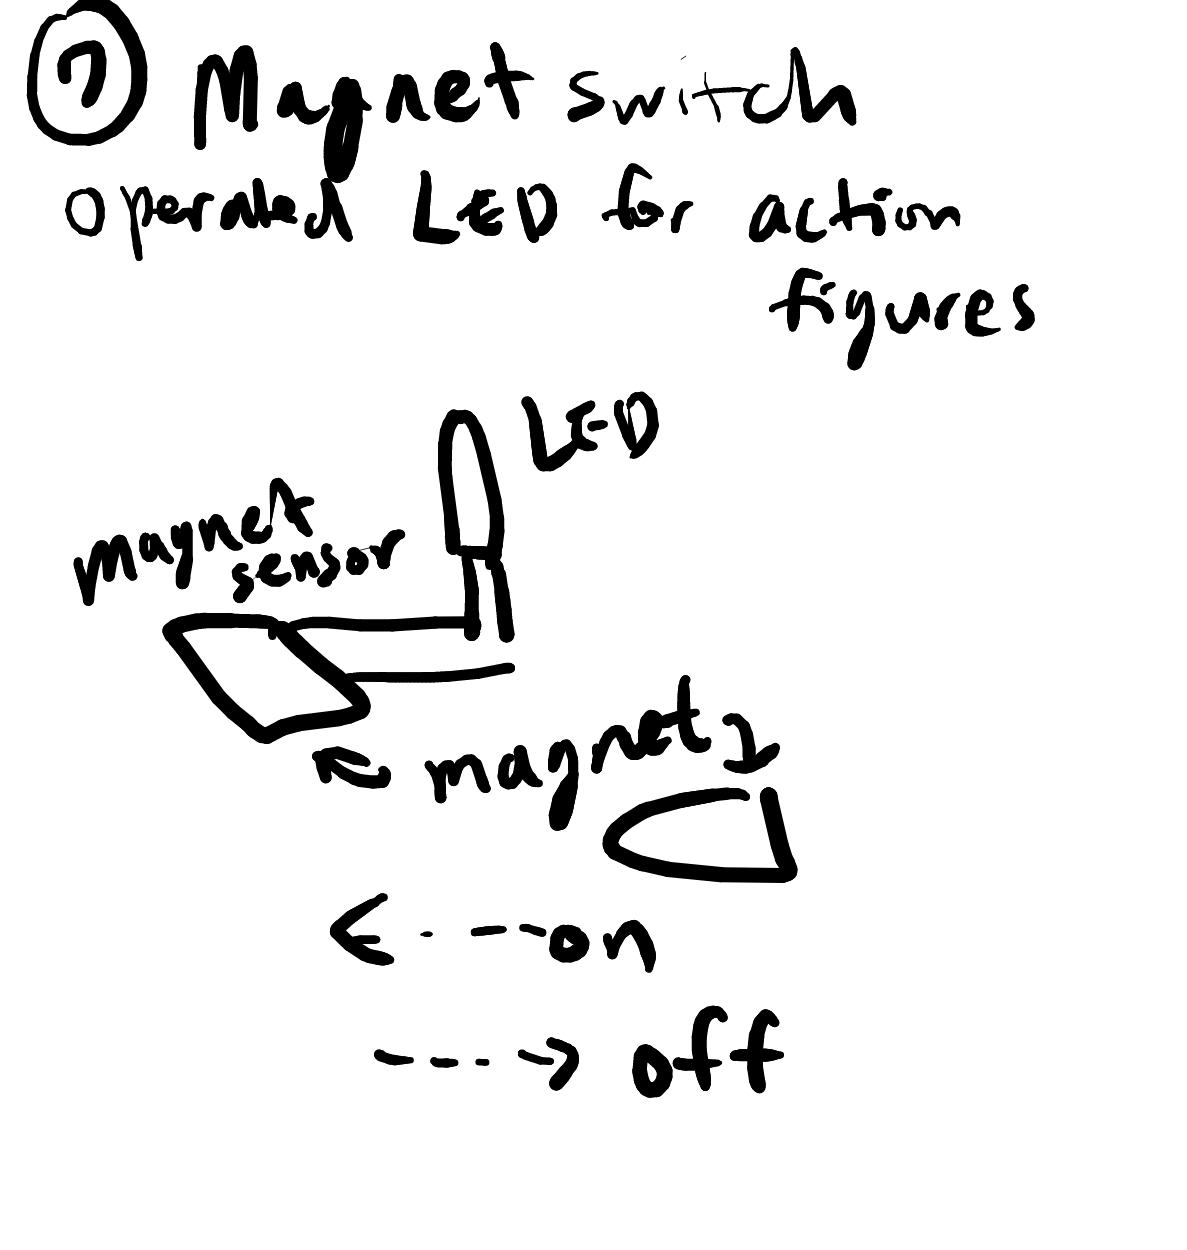 7 Magnet switch
operated LED for action
figures
LED
magnet
sensor
magnet
on
off